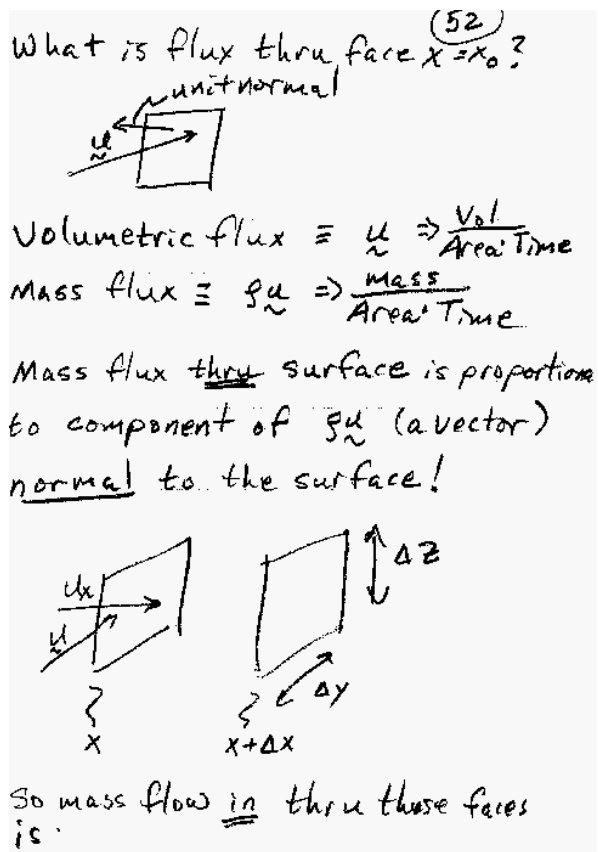 52
What is flux thru face x = x₀?
unit normal
u
Volumetric flux ≡ u ⇒ Vol / Area·Time
Mass flux ≡ ρu ⇒ mass / Area·Time
Mass flux thru surface is proportiona
to component of ρu (a vector)
normal to the surface!
ΔZ
uₓ
u
Δy
x
x+Δx
So mass flow in thru those faces
is